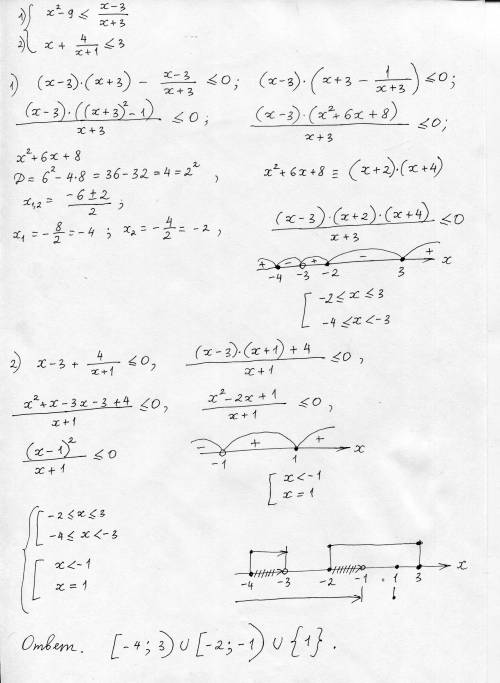 1) { x²-9 ≤ (x-3)/(x+3)
2) { x + 4/(x+1) ≤ 3
1) (x-3)·(x+3) - (x-3)/(x+3) ≤ 0; (x-3)·(x+3 - 1/(x+3)) ≤ 0;
(x-3)·((x+3)²-1)/(x+3) ≤ 0; (x-3)·(x²+6x+8)/(x+3) ≤ 0;
x²+6x+8
D = 6²-4·8 = 36-32 = 4 = 2², x²+6x+8 ≡ (x+2)·(x+4)
x₁,₂ = (-6±2)/2; (x-3)·(x+2)·(x+4)/(x+3) ≤ 0
x₁ = -8/2 = -4; x₂ = -4/2 = -2,
+ - + - + x
-4 -3 -2 3
[ -2 ≤ x ≤ 3
-4 ≤ x < -3
2) x-3 + 4/(x+1) ≤ 0, ((x-3)·(x+1)+4)/(x+1) ≤ 0,
(x²+x-3x-3+4)/(x+1) ≤ 0, (x²-2x+1)/(x+1) ≤ 0,
(x-1)²/(x+1) ≤ 0
- + + x
-1 1
[ x < -1
x = 1
{ [ -2 ≤ x ≤ 3
-4 ≤ x < -3
[ x < -1
x = 1
-4 -3 -2 -1 1 3 x
Ответ. [-4; 3) ∪ [-2; -1) ∪ {1}.